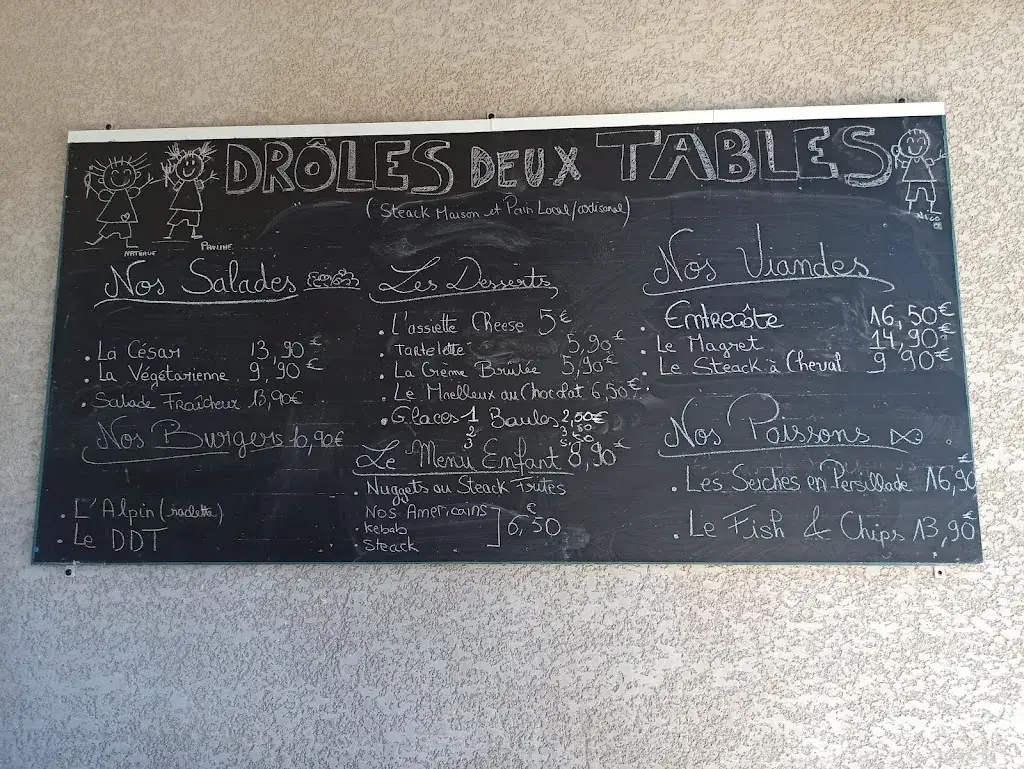 DRÔLES DEUX TABLES
(Steack Maison et Pain Local/artisanal)
NATHALIE
PAULINE
NICO
Nos Salades
. La César 13,90€
. La Végétarienne 9,90€
. Salade Fraîcheur 13,90€
Nos Burgers 10,90€
. L'Alpin (raclette)
. Le DDT
Les Desserts
. L'assiette Cheese 5€
. Tartelette 5,90€
. La Crème Brûlée 5,90€
. Le Moelleux au Chocolat 6,50€
. Glaces 1 Boules 2,50€
2
3
Le Menu Enfant 8,90€
. Nuggets ou Steack Frites
. Nos Américains
. Kebab 6,50€
. Steack
Nos Viandes
. Entrecôte 16,50€
. Le Magret 14,90€
. Le Steack à Cheval 9,90€
Nos Poissons
. Les Seiches en Persillade 16,90
. Le Fish & Chips 13,90€